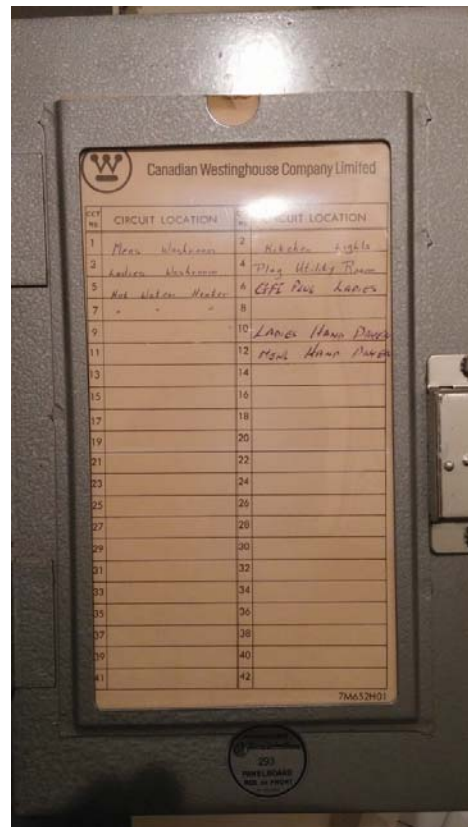 W
Canadian Westinghouse Company Limited
CCT NO. CIRCUIT LOCATION CIRCUIT LOCATION
1 Mens Washroom 2 Kitchen Lights
3 Ladies Washroom 4 Plug Utility Room
5 Hot Water Heater 6 GFI Plug LADIES
7 " " " 8
9 10 LADIES HAND DRYER
11 12 MENS HAND DRYER
13 14
15 16
17 18
19 20
21 22
23 24
25 26
27 28
29 30
31 32
33 34
35 36
37 38
39 40
41 42
7M652H01
PANELBOARD